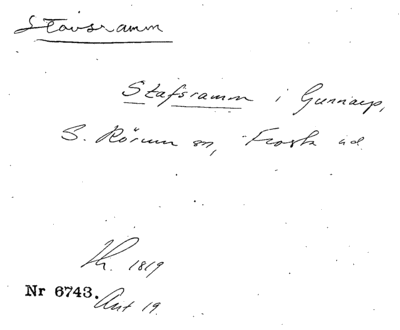 Stavsramm
Stafsramm i Gunnarp,
S. Rörum sn, Frosta hd.
Th. 1819
Nr 6743.
Ant 19.